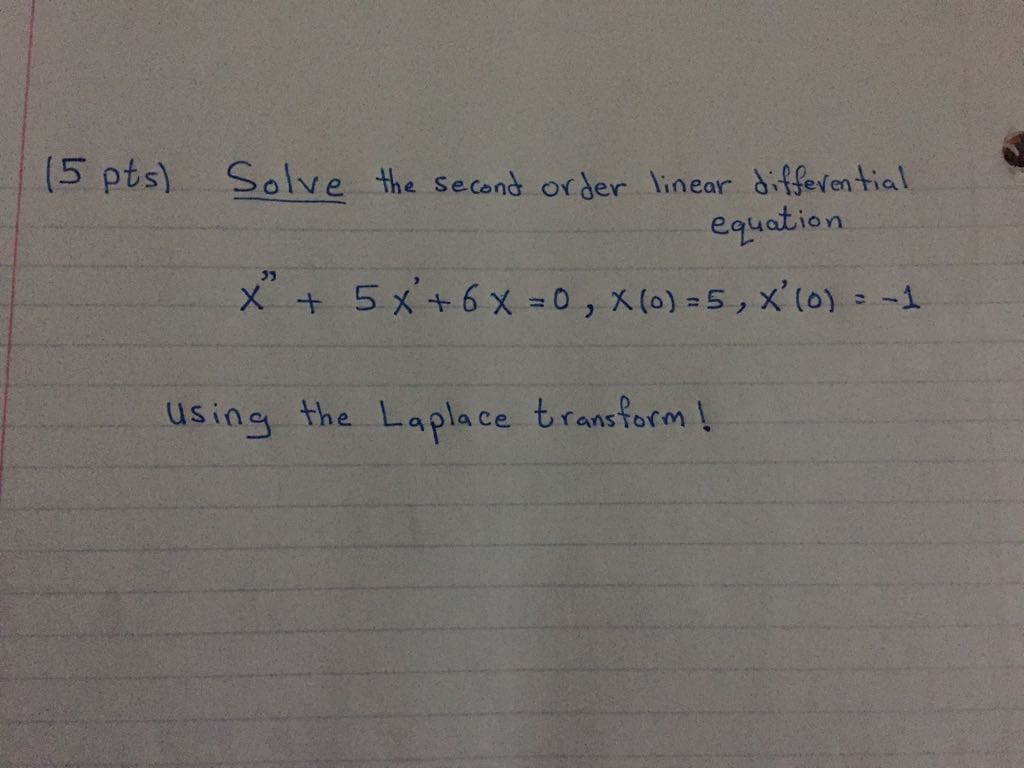 (5 pts) Solve the second order linear differential
equation
x" + 5x' + 6x = 0, x(0) = 5, x'(0) = -1
using the Laplace transform!